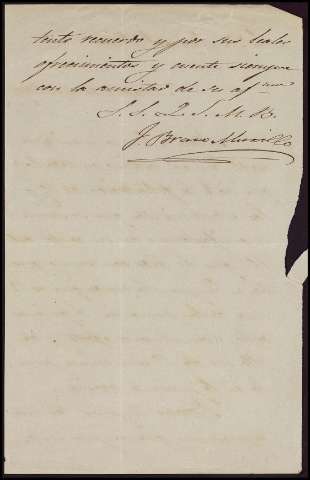 tento recuerdo y por sus leales
ofrecimientos y cuente siempre
con la amistad de su af.mo
S. S. Q. S. M. B.
J. Bravo Murillo